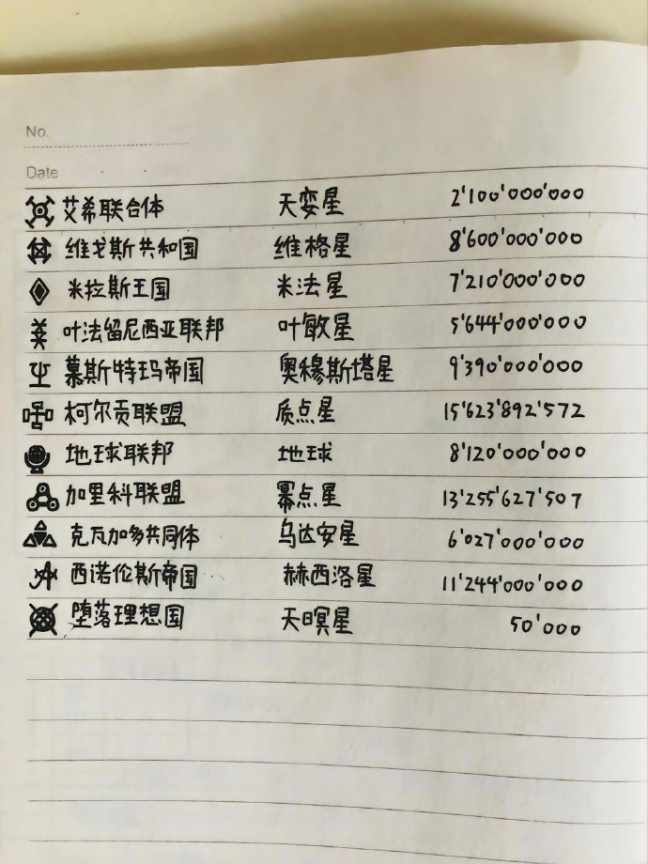 No.
Date
艾希联合体 天娈星 2'100'000'000
维戈斯共和国 维格星 8'600'000'000
米拉斯王国 米法星 7'210'000'000
叶法留尼西亚联邦 叶敏星 5'644'000'000
慕斯特玛帝国 奥穆斯塔星 9'390'000'000
柯尔贡联盟 质点星 15'623'892'572
地球联邦 地球 8'120'000'000
加里科联盟 幂点星 13'255'627'507
克瓦加多共同体 乌达安星 6'027'000'000
西诺伦斯帝国 赫西洛星 11'244'000'000
堕落理想国 天暝星 50'000